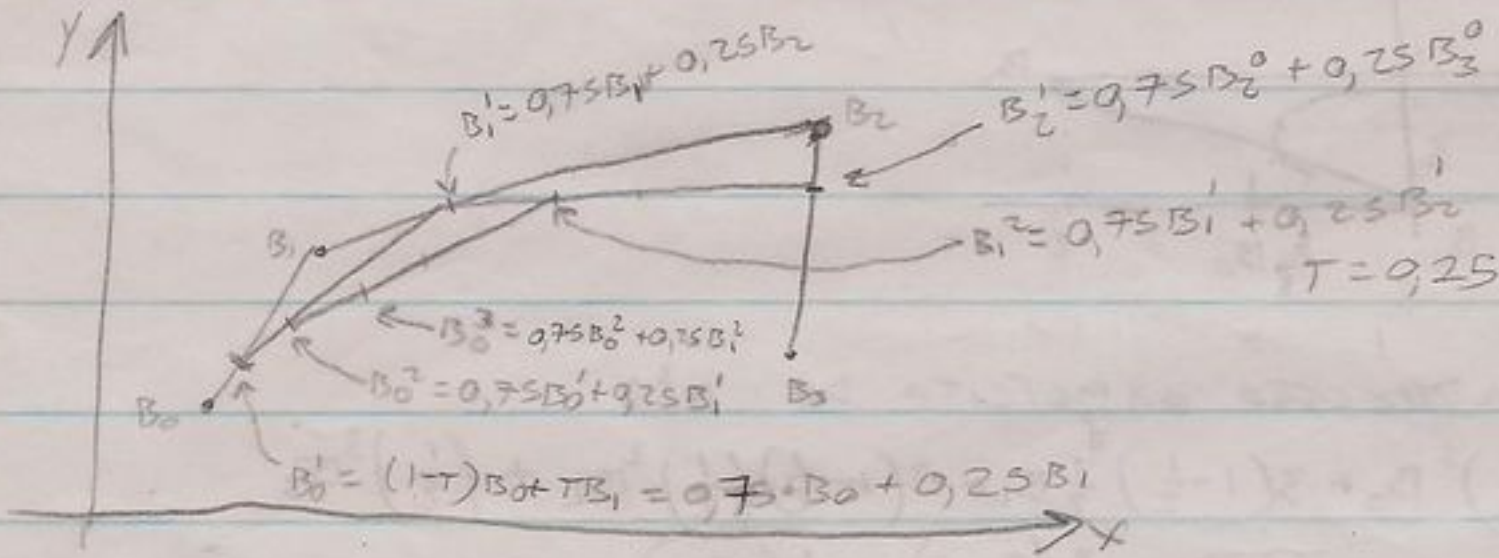 y
B₁¹ = 0,75B₁ + 0,25B₂
B₂
B₂¹ = 0,75B₂⁰ + 0,25B₃⁰
B₁
B₁² = 0,75B₁¹ + 0,25B₂¹
T = 0,25
B₀³ = 0,75B₀² + 0,25B₁²
B₀² = 0,75B₀¹ + 0,25B₁¹
B₃
B₀
B₀¹ = (1-T)B₀ + TB₁ = 0,75·B₀ + 0,25B₁
x